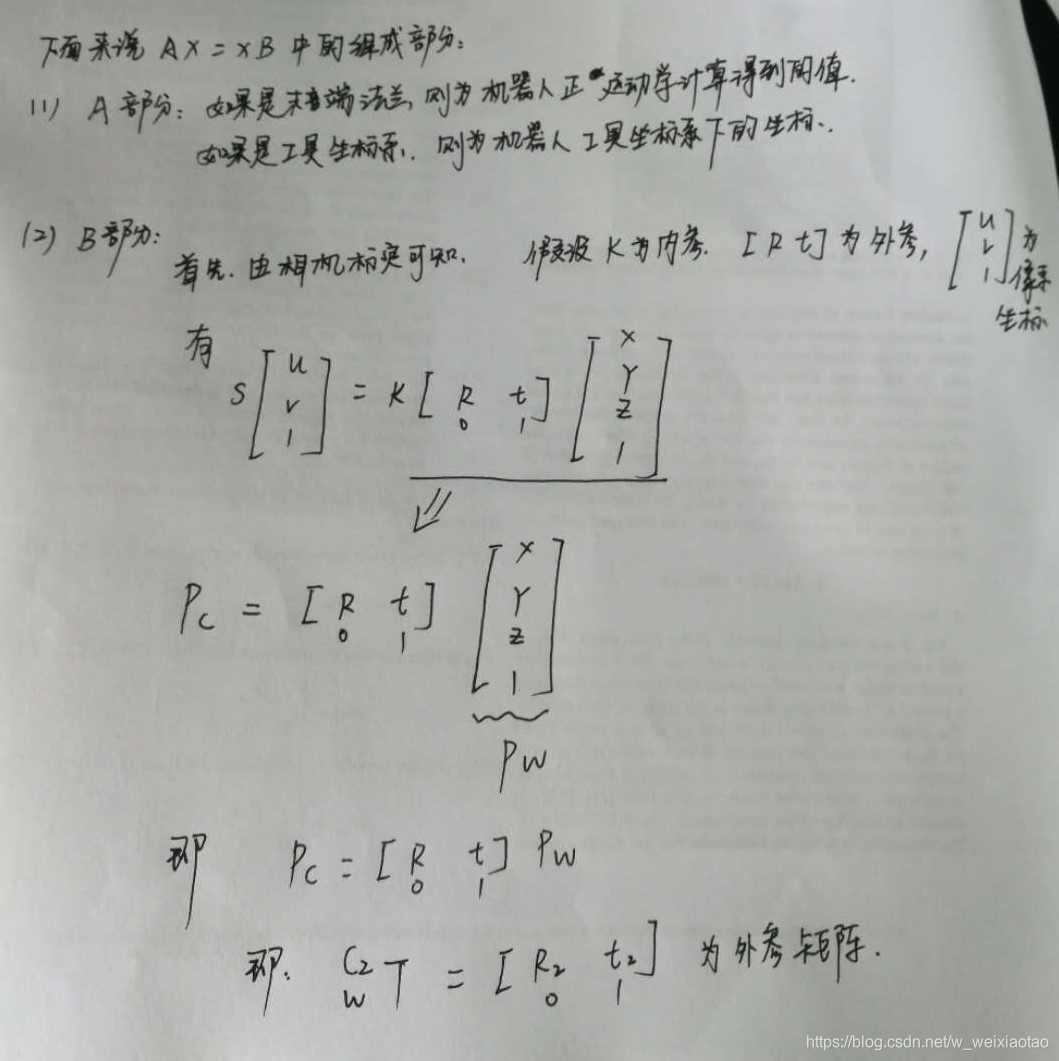 下面来说 AX = XB 中的组成部分:
(1) A部分: 如果是末端法兰,则为机器人正运动学计算得到的值.
如果是工具坐标系. 则为机器人工具坐标系下的坐标.
(2) B部分:
首先. 由相机标定可知. 假设 K 为内参. [R t] 为外参, [u v 1] 为像素坐标
有
S [u v 1] = K [R t 0 1] [X Y Z 1]
Pc = [R t 0 1] [X Y Z 1]
Pw
即 Pc = [R t 0 1] Pw
即: C2 W T = [R2 t2 0 1] 为外参矩阵.
https://blog.csdn.net/w_weixiaotao